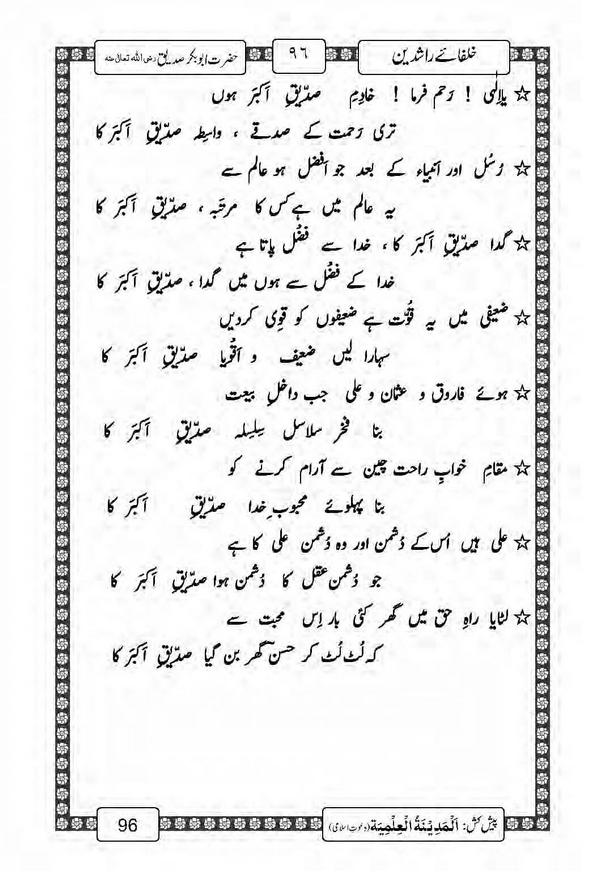 خلفائے راشدین
٩٦
حضرت ابوبکر صدیق رضی اللہ تعالیٰ عنہ
☆ یا الٰہی ! رَحم فرما ! خادِمِ صدّیقِ اَکبَر ہوں
تری رَحمت کے صدقے ، واسِطہ صدّیقِ اَکبَر کا
☆ رُسُل اور اَنبیاء کے بعد جو اَفضل ہو عالَم سے
یہ عالَم میں ہے کس کا مرتَبہ ، صدّیقِ اَکبَر کا
☆ گدا صدّیقِ اَکبَر کا ، خدا سے فضْل پاتا ہے
خدا کے فضْل سے ہوں میں گدا ، صدّیقِ اَکبَر کا
☆ ضعیفی میں یہ قُوَّت ہے ضعیفوں کو قوِی کردیں
سہارا لیں ضعیف و اَقْوِیا صدّیقِ اَکبَر کا
☆ ہوئے فاروق و عثمان و علی جب داخلِ بیعت
بنا فخرِ سلاسل سِلسِلہ صدّیقِ اَکبَر کا
☆ مقامِ خوابِ راحت چین سے آرام کرنے کو
بنا پہلوئے محبوبِ خدا صدّیقِ اَکبَر کا
☆ علی ہیں اُس کے دُشمن اور وہ دُشمن علی کا ہے
جو دُشمن عقل کا دُشمن ہوا صدّیقِ اَکبَر کا
☆ لٹایا راہِ حق میں گھر کئی بار اِس محبت سے
کہ لُٹ لُٹ کر حسنؔ گھر بن گیا صدّیقِ اَکبَر کا
پیش کش: اَلْمَدِيْنَةُ الْعِلْمِيَة (دعوتِ اسلامی)
96